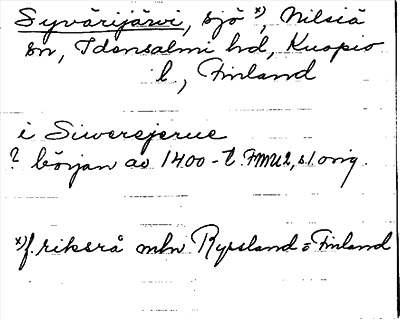 Syvärijärvi, sjö x), Nilsiä
sn, Idensalmi hd, Kuopio
l., Finland
i Siwersjerue
? början av 1400-t. FMU 2, s. 1 orig.
x) f. riksrå mln Ryssland o Finland